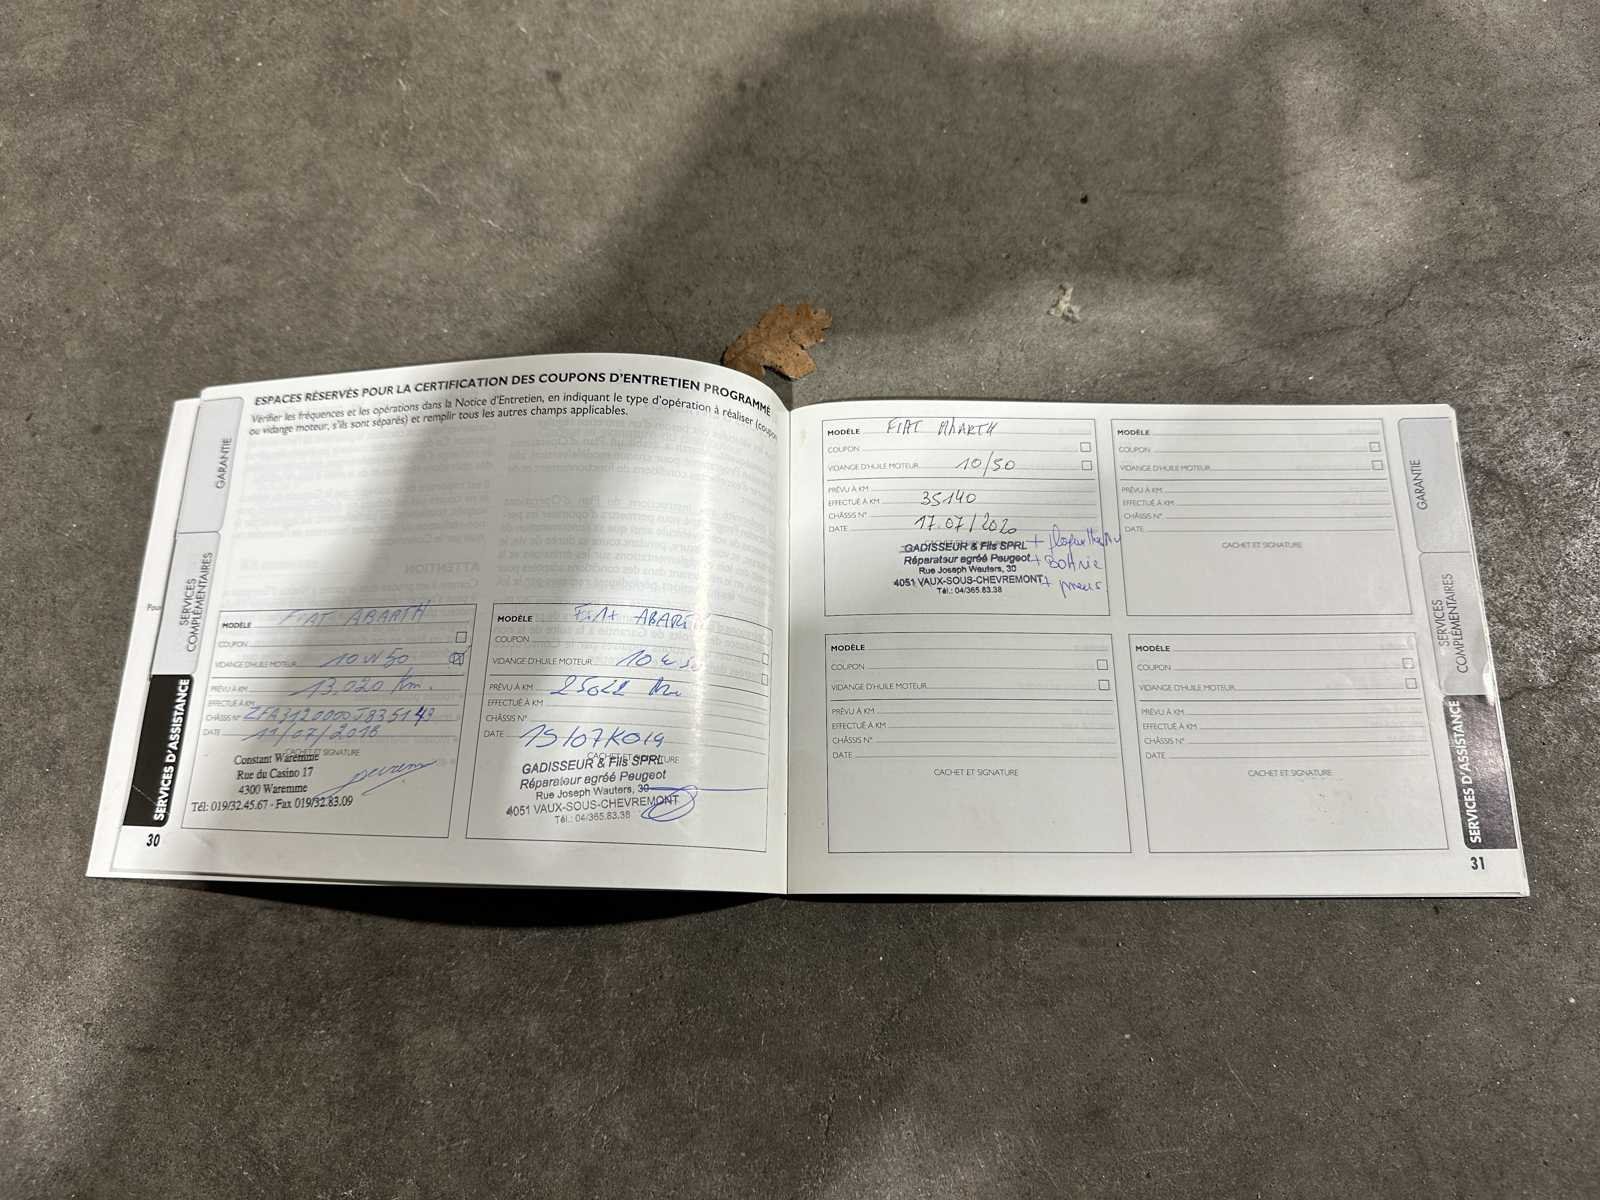 ESPACES RÉSERVÉS POUR LA CERTIFICATION DES COUPONS D'ENTRETIEN PROGRAMMÉ
Vérifier les fréquences et les opérations dans la Notice d'Entretien, en indiquant le type d'opération à réaliser (coupon
ou vidange moteur, s'ils sont séparés) et remplir tous les autres champs applicables.
GARANTIE
SERVICES
COMPLÉMENTAIRES
SERVICES D'ASSISTANCE
Pour
ATTENTION
MODÈLE FIAT ABARTH
COUPON
VIDANGE D'HUILE MOTEUR 10W50
PRÉVU À KM 13.020 km.
EFFECTUÉ À KM
CHÂSSIS N° ZFA3120000J835143
DATE 11/07/2018
CACHET ET SIGNATURE
Constant Waremme
Rue du Casino 17
4300 Waremme
Tél: 019/32.45.67 - Fax 019/32.83.09
30
MODÈLE FIAT ABARTH
COUPON
VIDANGE D'HUILE MOTEUR 10w50
PRÉVU À KM
EFFECTUÉ À KM
CHÂSSIS N°
DATE
CACHET ET SIGNATURE
GADISSEUR & Fils SPRL
Réparateur agréé Peugeot
Rue Joseph Wauters, 30
4051 VAUX-SOUS-CHEVREMONT
Tél.: 04/365.83.38
MODÈLE FIAT ABARTH
COUPON
VIDANGE D'HUILE MOTEUR 10/50
PRÉVU À KM
EFFECTUÉ À KM 35140
CHÂSSIS N°
DATE 17.07/2020
CACHET ET SIGNATURE
GADISSEUR & Fils SPRL
Réparateur agréé Peugeot
Rue Joseph Wauters, 30
4051 VAUX-SOUS-CHEVREMONT + pneus
Tél.: 04/365.83.38
MODÈLE
COUPON
VIDANGE D'HUILE MOTEUR
PRÉVU À KM
EFFECTUÉ À KM
CHÂSSIS N°
DATE
CACHET ET SIGNATURE
MODÈLE
COUPON
VIDANGE D'HUILE MOTEUR
PRÉVU À KM
EFFECTUÉ À KM
CHÂSSIS N°
DATE
CACHET ET SIGNATURE
MODÈLE
COUPON
VIDANGE D'HUILE MOTEUR
PRÉVU À KM
EFFECTUÉ À KM
CHÂSSIS N°
DATE
CACHET ET SIGNATURE
GARANTIE
SERVICES
COMPLÉMENTAIRES
SERVICES D'ASSISTANCE
31